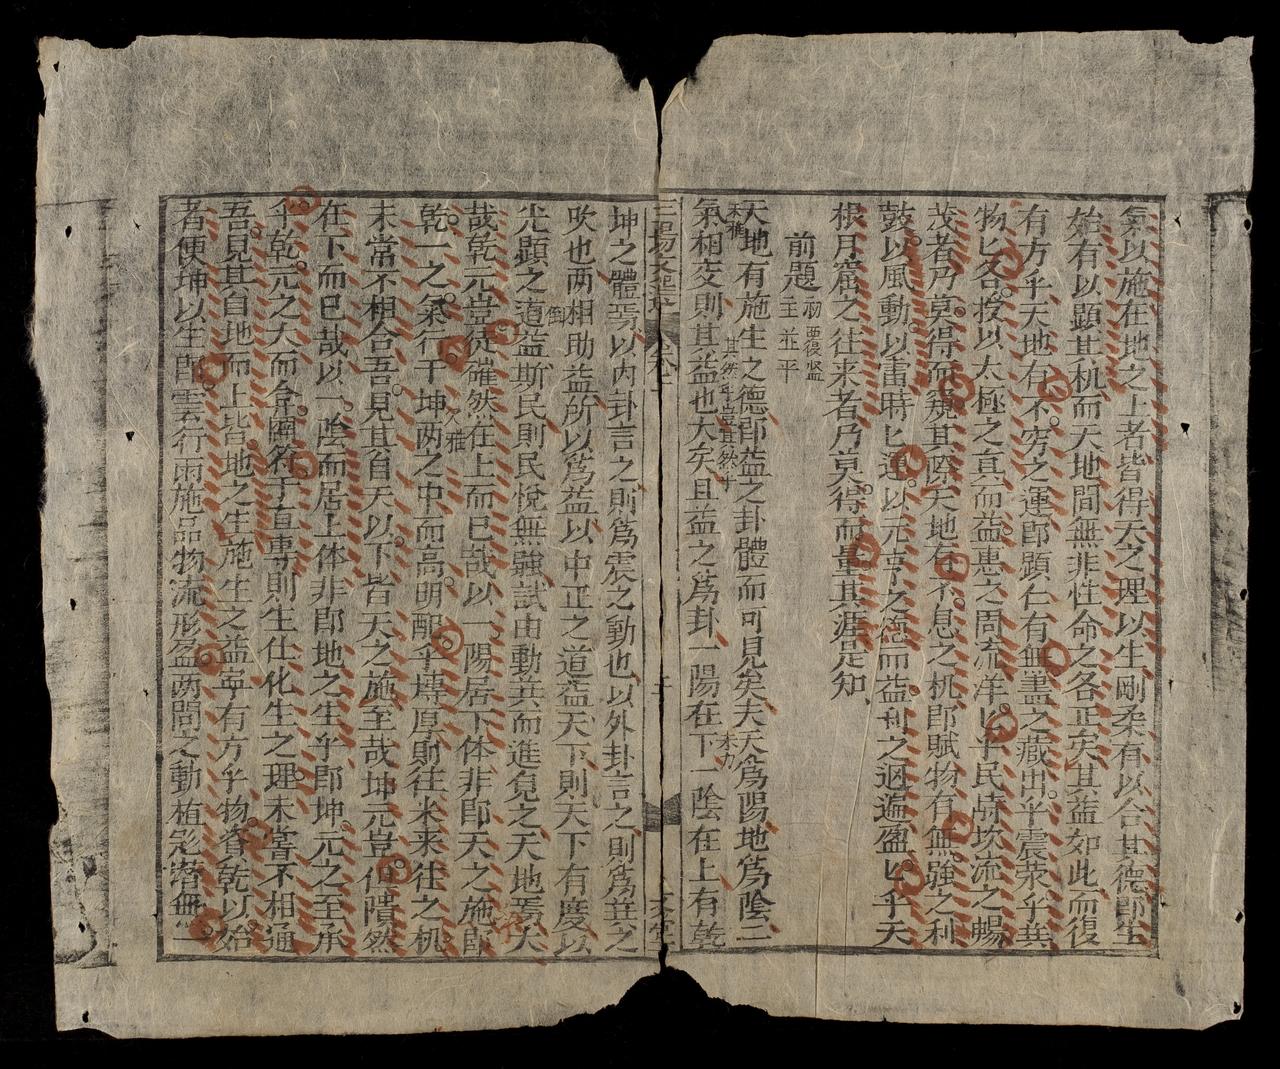 氣以施在地之上者皆得天之理以生剛柔有以合其德即生
始有以顕其机而天地間無非性命之各正矣其益如此而復
有方乎天地有不穷之運即顕仁有無盡之藏出乎震荣乎巽
物匕各投以太極之真而益惠之周流洋匕乎民時坎流之暢
茂者乃莫得而窺其際天地有不息之机即賦物有無強之利
鼓以風動以雷時匕運以元亨之德而益利之迥遍盈匕乎天
根月窟之往来者乃莫得而量其涯是知
前題
主並平
天地有施生之德即益之卦體而可見矣夫天為陽地為陰二
氣相交則其益也大矣且益之為卦一陽在下一陰在上有乾
坤之體焉以内卦言之則為震之動也以外卦言之則為巽之
吹也两相助益所以為益以中正之道益天下則天下有慶以
光顕之道益斯民則民悦無強試由動巽而進覓之天地焉大
哉乾元豈徒確然在上而已哉以一陽居下体非即天之施即
乾一之氣行于坤两之中而高明配乎塼厚則往来来往之机
未常不相合吾見其自天以下皆天之施至哉坤元豈但隤然
在下而已哉以一陰而居上体非即地之生乎即坤元之至承
乎乾元之大而翕闢符于直專則生仕化生之理未嘗不相通
吾見其自地而上皆地之生施生之益寧有方乎物資乾以始
者便坤以生即雲行雨施品物流形盈两間之動植飛潜無一